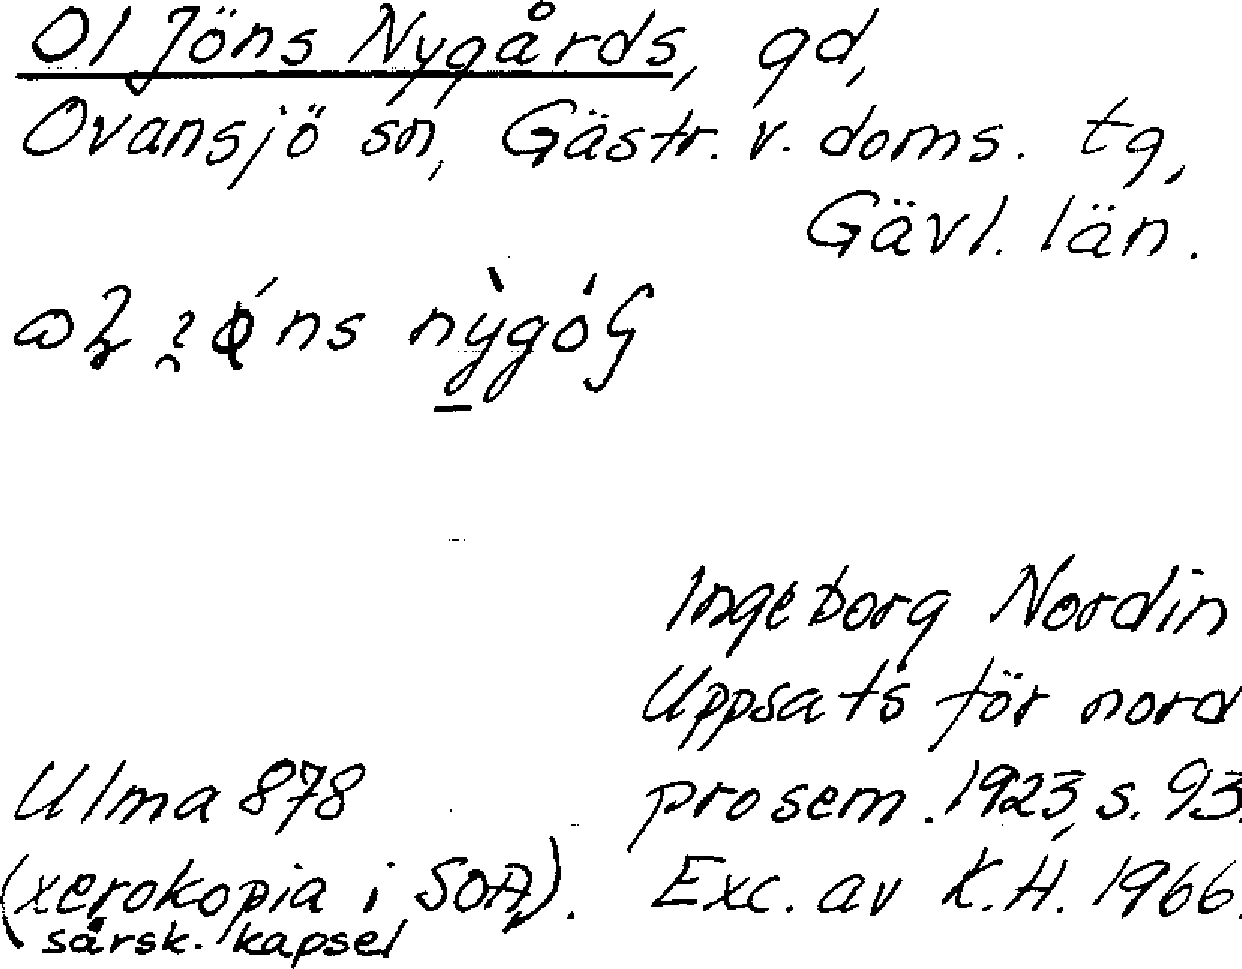 Ol Jöns Nygårds, gd,
Ovansjö sn, Gästr. v. doms. tg,
Gävl. län.
Ingeborg Nordin
Uppsats för nord
Ulma 878 prosem. 1923, s. 93.
(xerokopia i SOA). Exc. av K.H. 1966.
särsk. kapsel